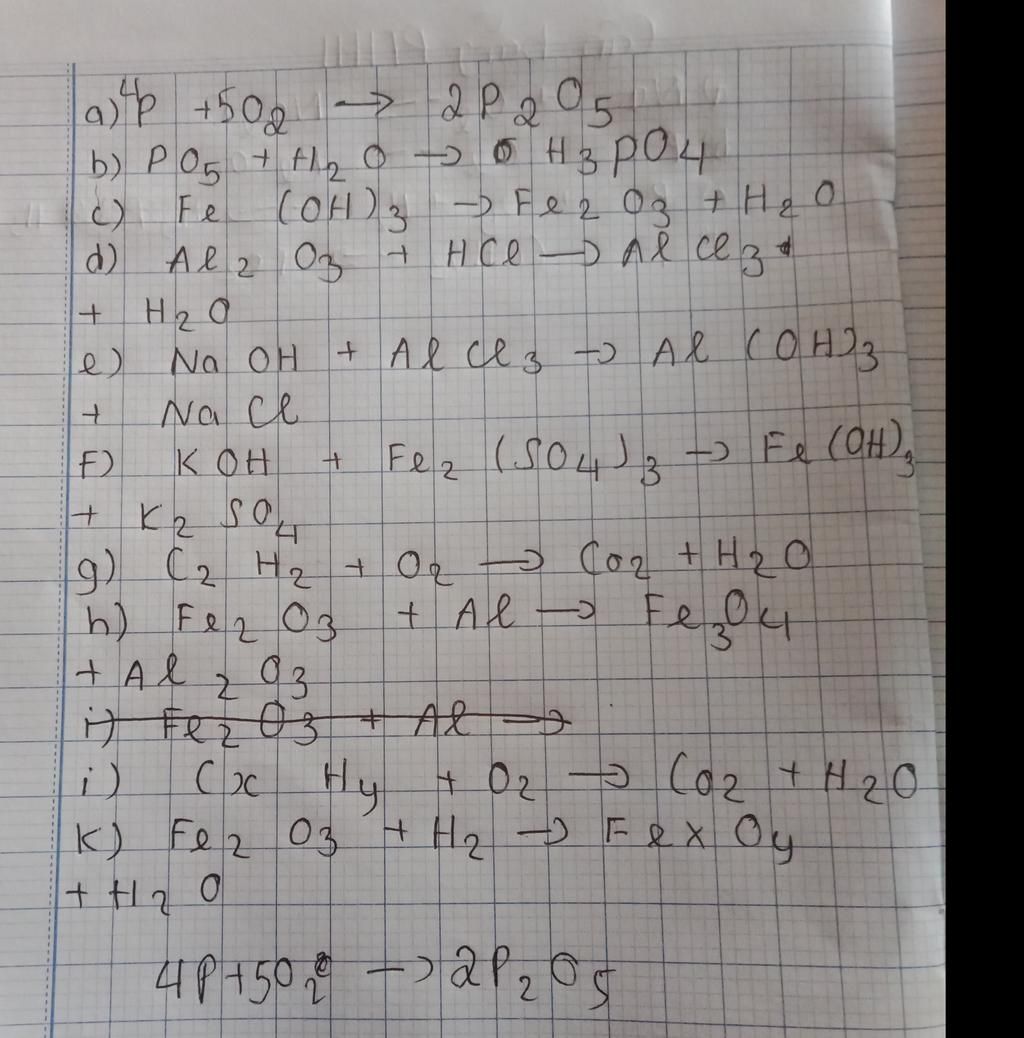 a) 4P + 5O2 → 2P2O5
b) PO5 + H2O → H3PO4
c) Fe (OH)3 → Fe2 O3 + H2O
d) Al2 O3 + HCl → AlCl3
+ H2O
e) NaOH + AlCl3 → Al (OH)3
+ NaCl
F) KOH + Fe2 (SO4)3 → Fe(OH)3
+ K2 SO4
g) C2 H2 + O2 → CO2 + H2O
h) Fe2 O3 + Al → Fe3O4
+ Al2 O3
i) Fe2 O3 + Al →
i) Cx Hy + O2 → CO2 + H2O
K) Fe2 O3 + H2 → Fex Oy
+ H2O
4P+5O2 → 2P2O5